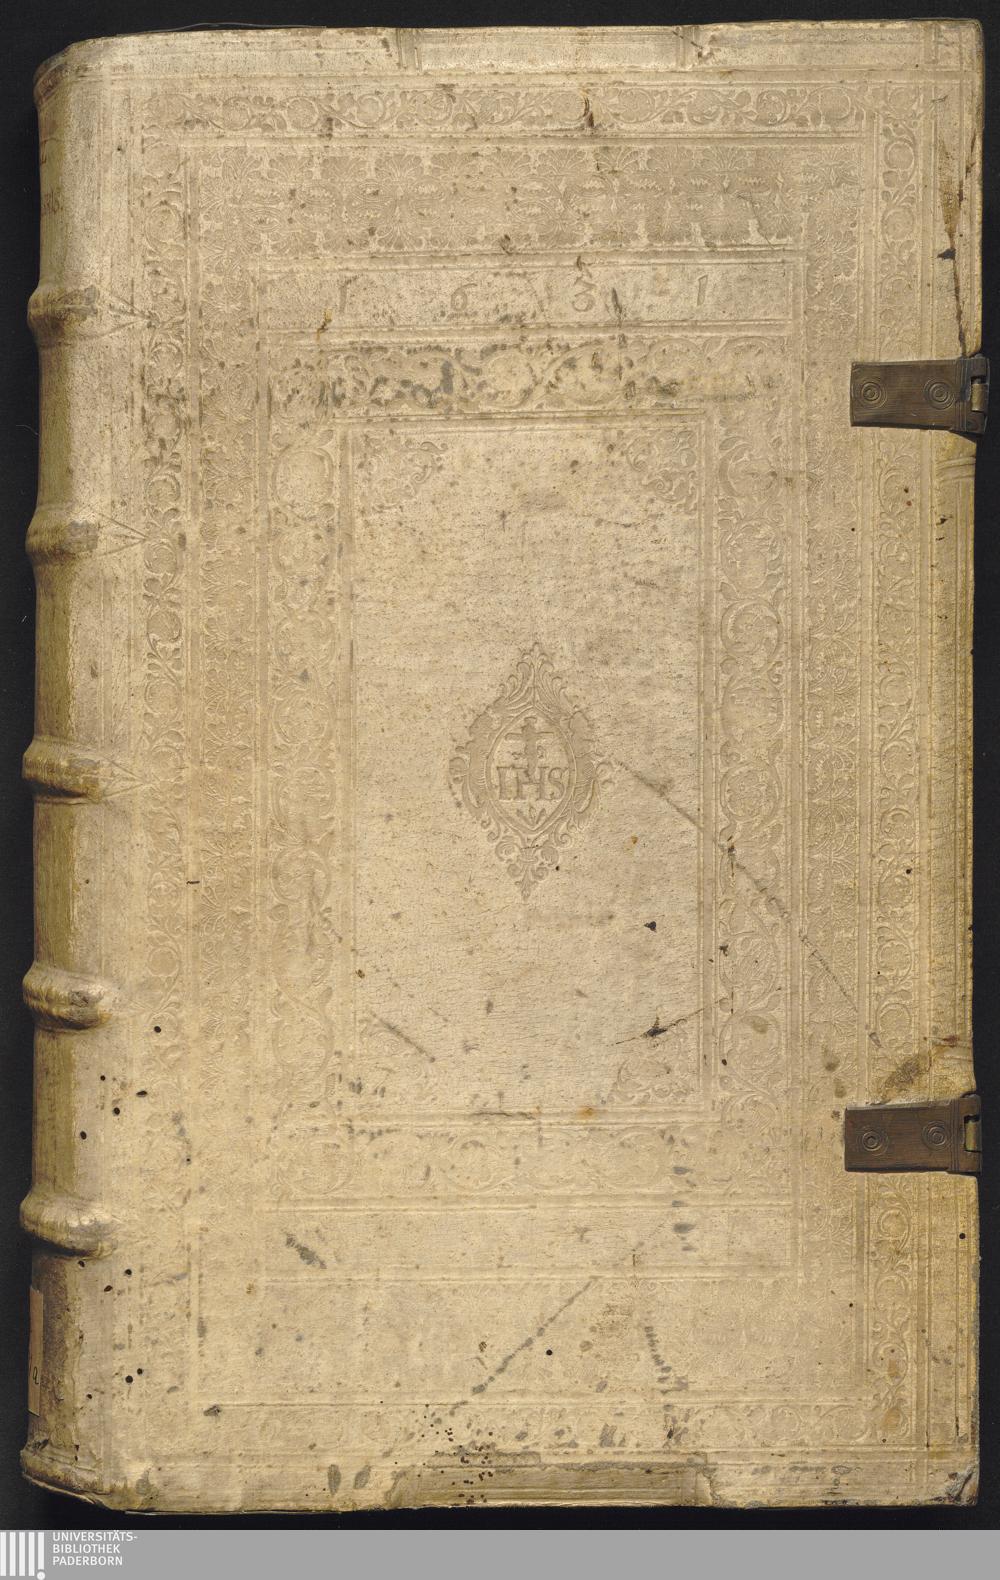 1 6 3 1
IHS
UNIVERSITÄTS-
BIBLIOTHEK
PADERBORN